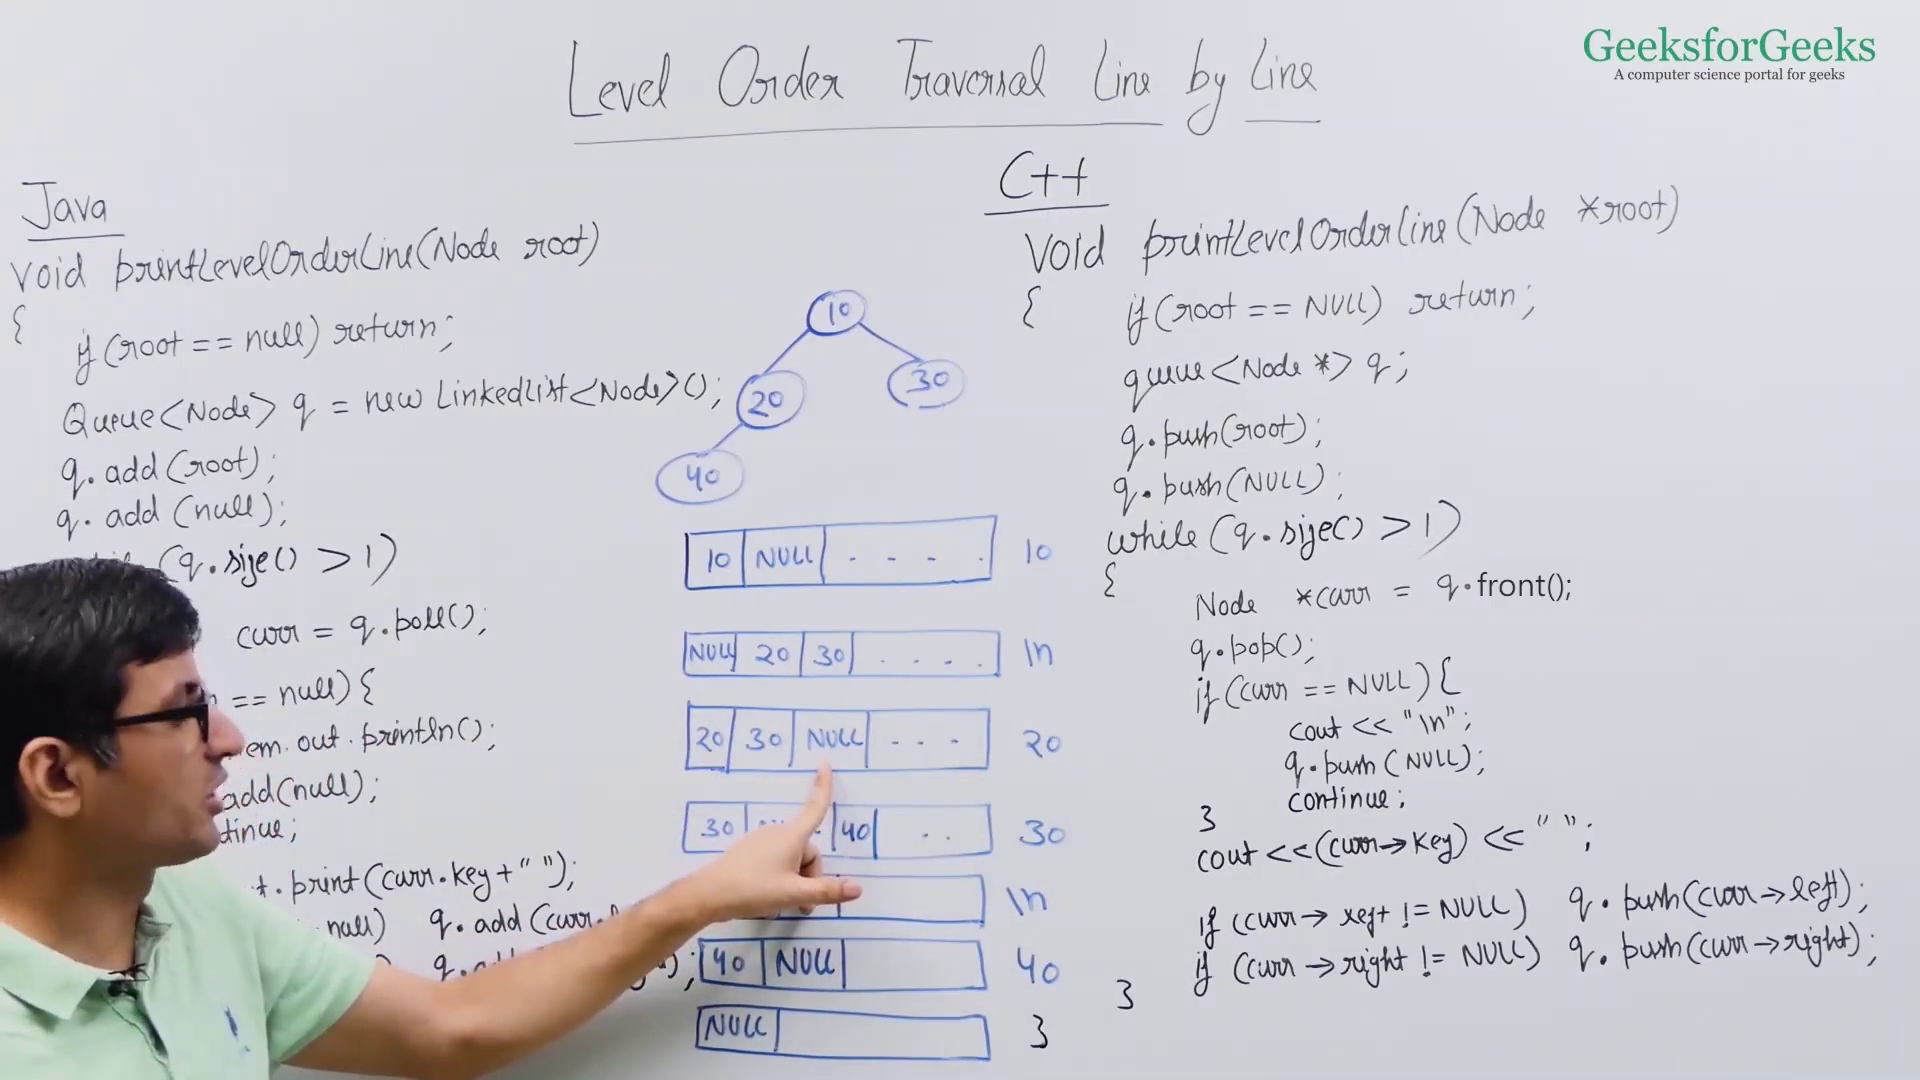 GeeksforGeeks
A computer science portal for geeks
Level Order Traversal Line by Line
Java
void printLevelOrderLine(Node root)
{
if (root == null) return;
Queue<Node> q = new LinkedList<Node>();
q.add(root);
q.add(null);
(q.size() > 1)
curr = q.poll();
== null) {
em.out.println();
add(null);
tinue;
t.print(curr.key+" ");
null) q.add(curr.
);
10
20 30
40
10 NULL - - - . 10
NULL 20 30 . . . . \n
20 30 NULL - - - 20
30 40 . . 30
\n
40 NULL 40
NULL
C++
Void printLevelOrderLine(Node *root)
{
if (root == NULL) return;
queue<Node *> q;
q.push(root);
q.push(NULL);
while (q.size() > 1)
{
Node *curr = q.front();
q.pop();
if (curr == NULL) {
cout << "\n";
q.push(NULL);
continue;
}
cout << (curr->key) << " ";
if (curr->left != NULL) q.push(curr->left);
if (curr->right != NULL) q.push(curr->right);
}
}